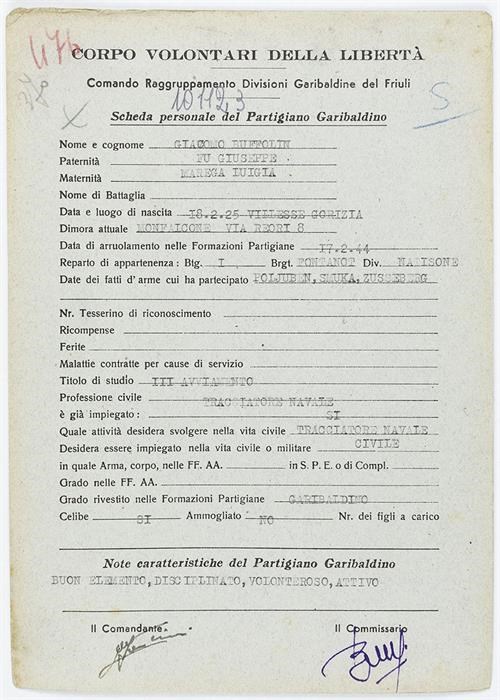 476
38
CORPO VOLONTARI DELLA LIBERTÀ
Comando Raggruppamento Divisioni Garibaldine del Friuli
X
S
Scheda personale del Partigiano Garibaldino
Nome e cognome GIACOMO BUFFOLIN
Paternità FU GIUSEPPE
Maternità MAREGA LUIGIA
Nome di Battaglia
Data e luogo di nascita 18.2.25 VILLESSE GORIZIA
Dimora attuale MONFALCONE VIA REORI 8
Data di arruolamento nelle Formazioni Partigiane 17.2.44
Reparto di appartenenza: Btg. I Brgt. FONTANOT Div. NATISONE
Date dei fatti d'arme cui ha partecipato POLJUBEN, SMUKA, ZUSSEBERG
Nr. Tesserino di riconoscimento
Ricompense
Ferite
Malattie contratte per cause di servizio
Titolo di studio III AVVIAMENTO
Professione civile TRACCIATORE NAVALE
è già impiegato: SI
Quale attività desidera svolgere nella vita civile TRACCIATORE NAVALE
Desidera essere impiegato nella vita civile o militare CIVILE
in quale Arma, corpo, nelle FF. AA. in S. P. E. o di Compl.
Grado nelle FF. AA.
Grado rivestito nelle Formazioni Partigiane GARIBALDINO
Celibe SI Ammogliato NO Nr. dei figli a carico
Note caratteristiche del Partigiano Garibaldino
BUON ELEMENTO, DISCIPLINATO, VOLONTEROSO, ATTIVO
Il Comandante Il Commissario